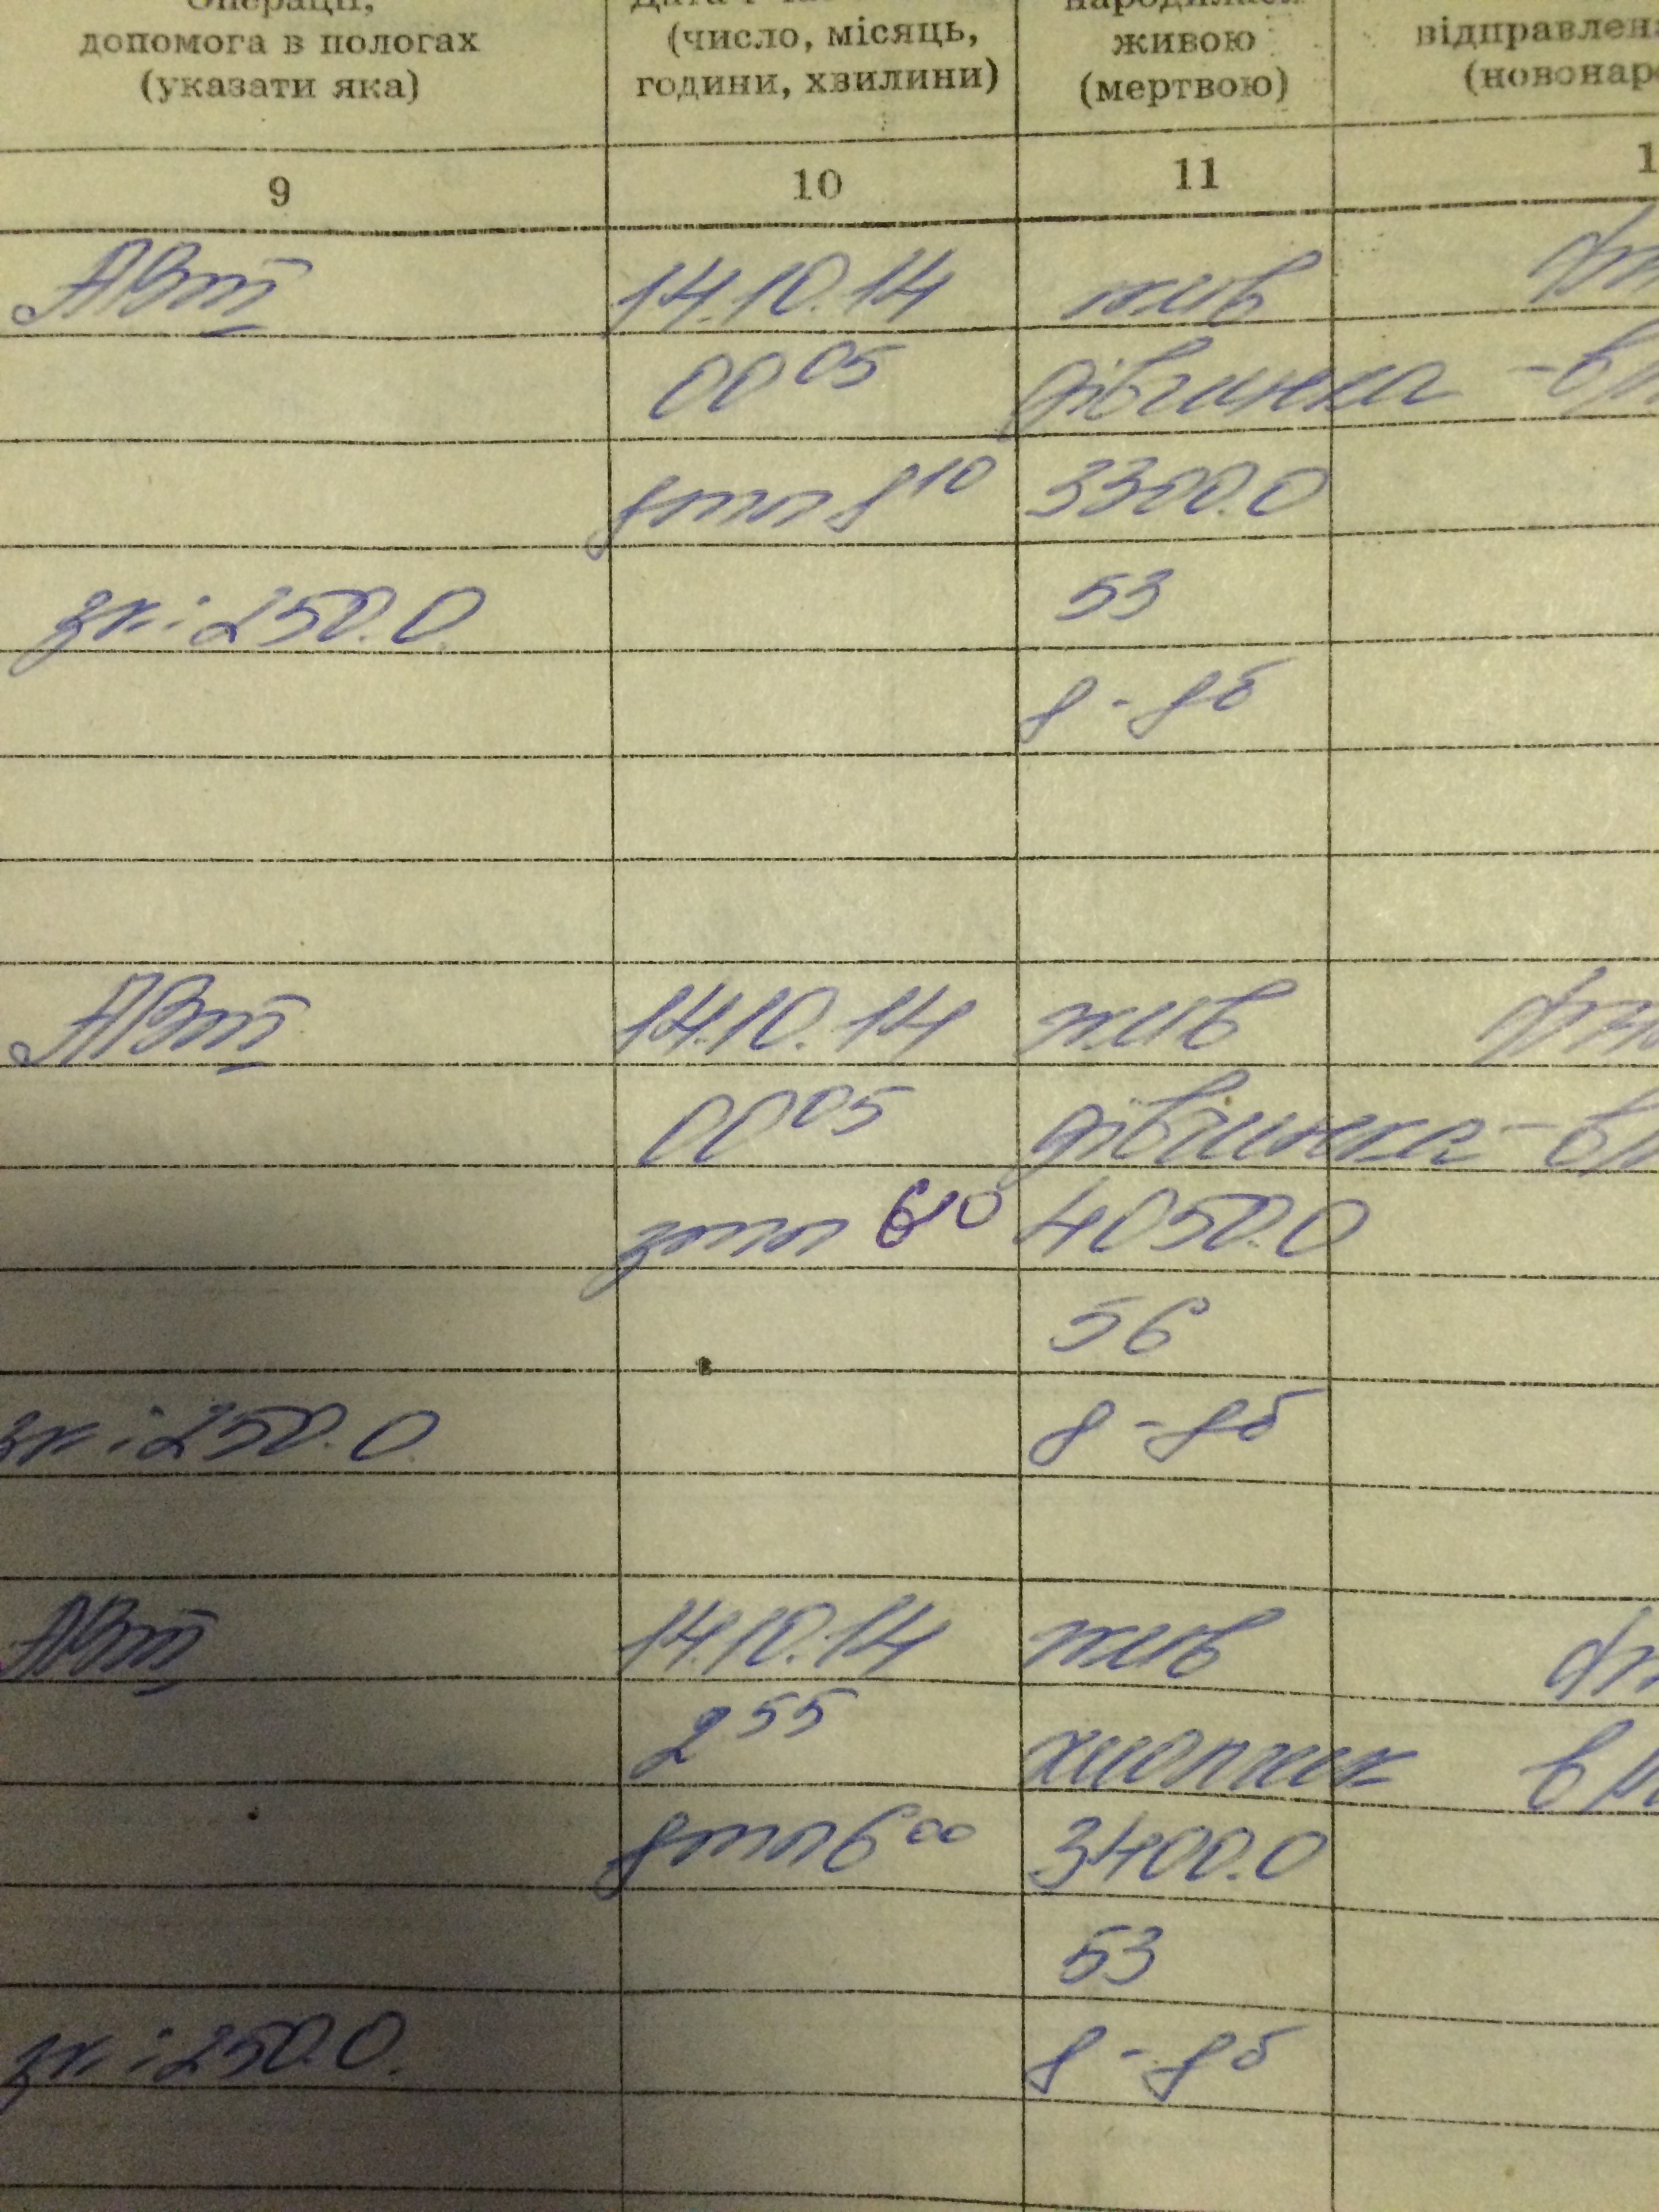 Операції,
допомога в пологах
(указати яка)
(число, місяць,
години, хвилини)
народилася
живою
(мертвою)
9
10
11
АВТ
14.10.14
жив
00 05
дівчинка
8 10
3300.0
зк: 250.0
53
8-8б
АВТ
14.10.14
жив
00 05
дівчинка
6 10
4050.0
56
зк: 250.0
8-8б
АВТ
14.10.14
жив
2 55
хлопчик
6 00
3400.0
53
зк: 250.0.
8-8б